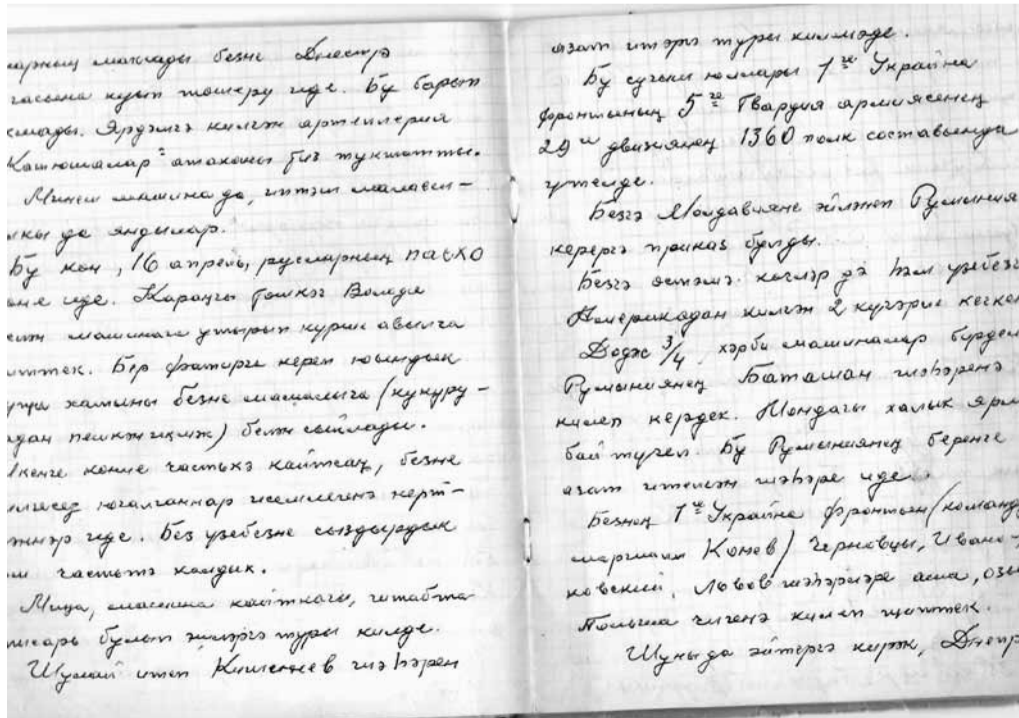 ларның максады безне Днестр
гасына куып төшерү иде. Бу барып
кмады. Ярдәмгә килгән артиллерия
Катюшалар атакасы гиз туктатты.
Минем машина да, иптәш маласы-
ныкы да яндылар.
Бу көн, 16 апрель, русларның пасхо
көне иде. Караңгы төшкәч Володя
машинага утырып күрше авылга
киттек. Бер фатирга кереп юындык
хуҗа хатыны безне мамалыга (кукуру-
здан пешкән икмәк) белән сыйлады.
Икенче көнне частькә кайтсак, безне
югалганнар исемлегенә керт-
кәннәр иде. Без үзебезне сыздырдык
частьтә калдык.
Миңа, машина кайткачы, штабта
писарь булып эшләргә туры килде.
Шулай итеп Кишенев шәһәрен
азат итәргә туры килмәде.
Бу сугыш юллары 1че Украина
фронтының 5че Гвардия армиясенең
29ы двизиянең 1360 полк составында
үтелде.
Безгә Молдавияне әйләнеп Румыния
керергә приказ булды.
Безгә өстәмә көчләр дә һәм үзебезг
Америкадан килгән 2 күчәрле кечкен
Додж 3/4 хәрби машиналар бирделә
Румыниянең Баташан шәһәренә
килеп кердек. Мондагы халык ярл
бай түгел. Бу Румыниянең беренче
азат ителгән шәһәре иде.
Безнең 1че Украина фронтын (команд
маршалы Конев) Черновцы, Ивано-
ковский, Львов шәһәрләре аша, озы
Польша чигенә килеп җиттек.
Шуны да әйтергә кирәк, Днепр